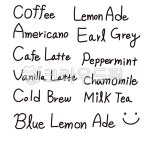 Coffee Lemon Ade
Americano Earl Grey
Cafe Latte Peppermint
Vanilla Latte Chamomile
Cold Brew Milk Tea
Blue Lemon Ade